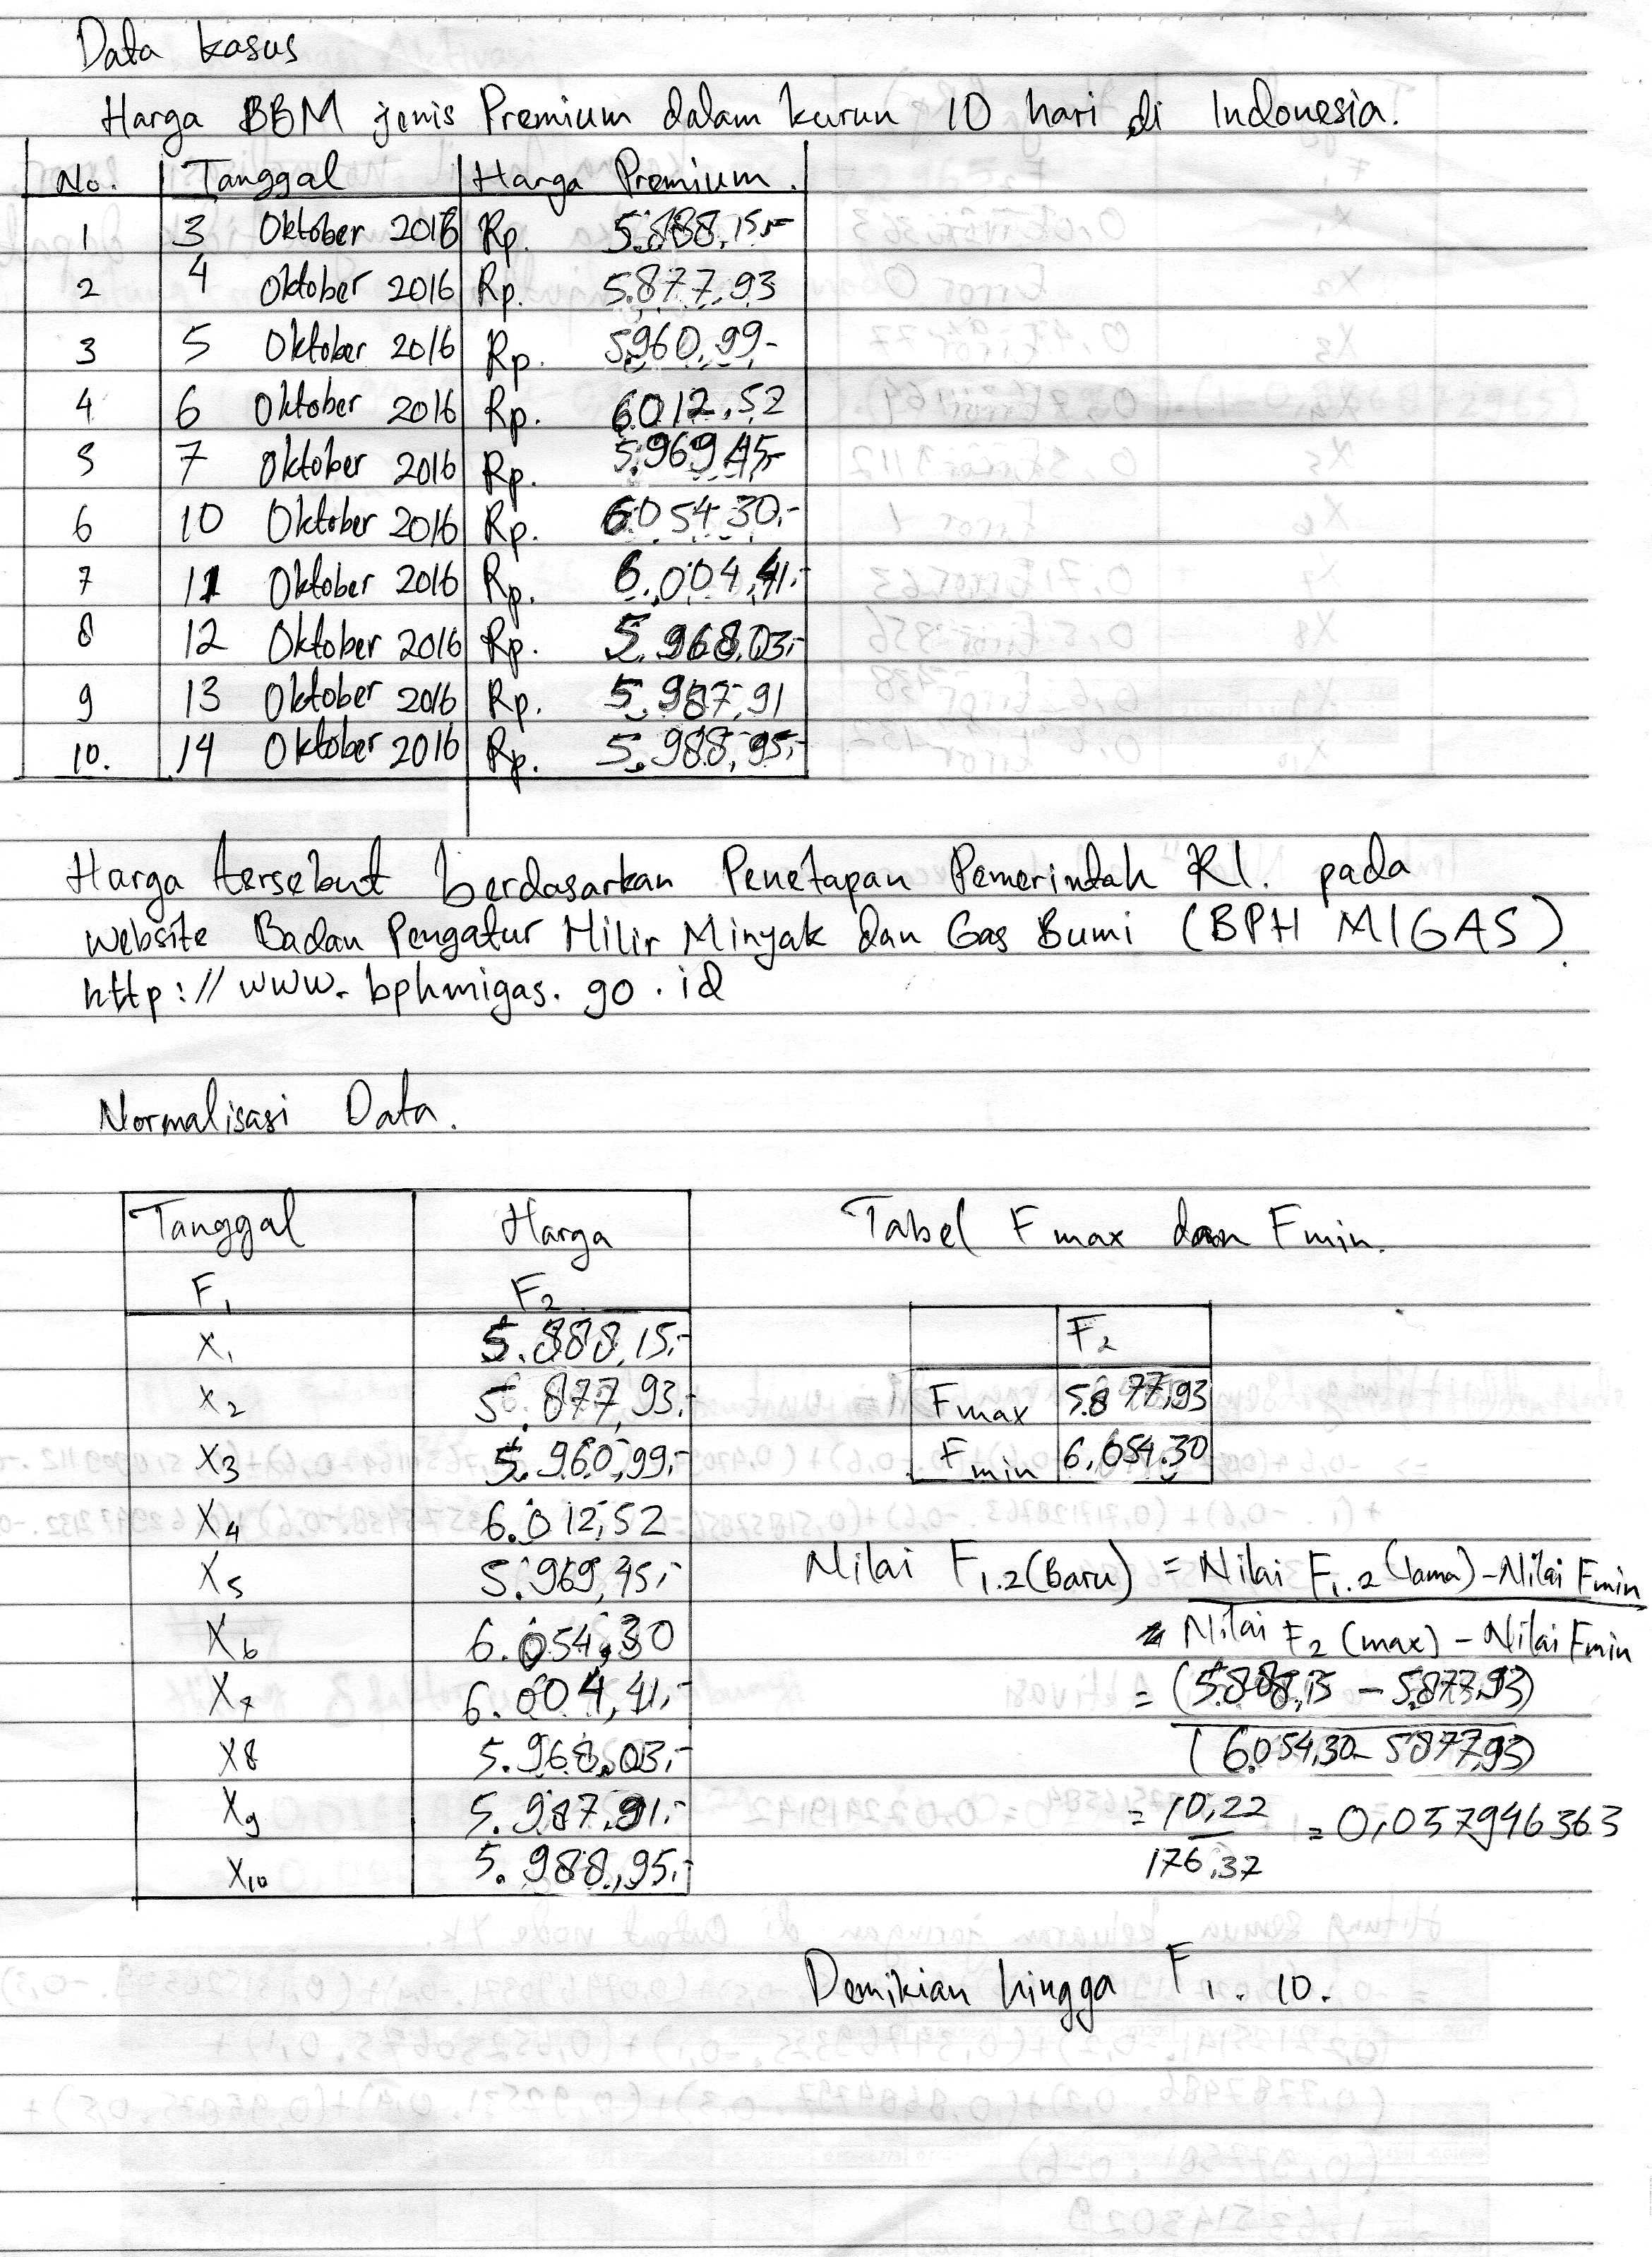 Data kasus
Harga BBM jenis Premium dalam kurun 10 hari di Indonesia.
No. Tanggal Harga Premium.
1 3 Oktober 2016 Rp. 5.888,15,-
2 4 Oktober 2016 Rp. 5.877,93
3 5 Oktober 2016 Rp. 5.960,99,-
4 6 Oktober 2016 Rp. 6.012,52
5 7 Oktober 2016 Rp. 5.969,45,-
6 10 Oktober 2016 Rp. 6.054.30,-
7 11 Oktober 2016 Rp. 6.004,41,-
8 12 Oktober 2016 Rp. 5.968.03,-
9 13 Oktober 2016 Rp. 5.987,91
10. 14 Oktober 2016 Rp. 5.988,95,-
Harga tersebut berdasarkan Penetapan Pemerintah RI. pada
Website Badan Pengatur Hilir Minyak dan Gas Bumi (BPH MIGAS)
http://www.bphmigas.go.id
Normalisasi Data.
Tanggal Harga
F1 F2
X1 5.888,15,-
X2 5.877,93,-
X3 5.960,99,-
X4 6.012,52
X5 5.969,45,-
X6 6.054,30
X7 6.004,41,-
X8 5.968,03,-
X9 5.987,91,-
X10 5.988,95,-
Tabel Fmax dan Fmin.
F2
Fmax 5.877,93
Fmin 6.054.30
Nilai F1.2 (Baru) = Nilai F1.2 (lama) - Nilai Fmin
Nilai F2 (max) - Nilai Fmin
= (5.888,15 - 5.877,93)
(6.054,30 - 5877,93)
= 10,22
176,37
= 0,057946363
Demikian hingga F1. 10.